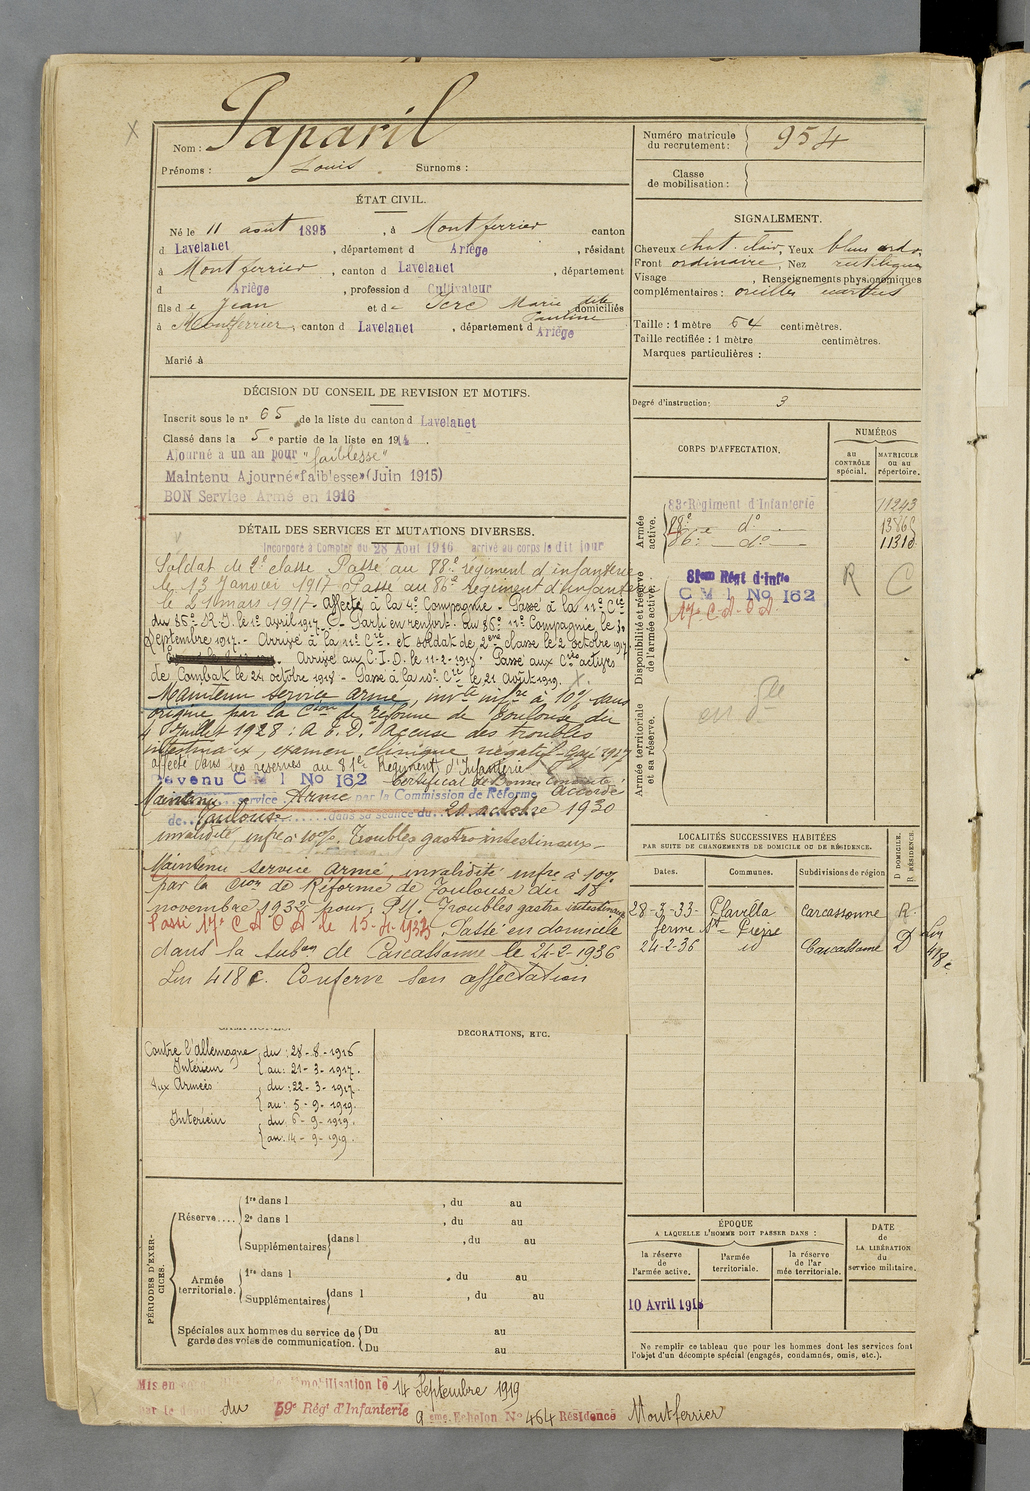 Nom : Paparil
Prénoms : Louis Surnoms :
Numéro matricule du recrutement : 954
Classe de mobilisation :
ÉTAT CIVIL.
Né le 11 août 1895, à Montferrier canton
d Lavelanet, département d Ariège, résidant
à Montferrier, canton d Lavelanet, département
d Ariège, profession d Cultivateur
fils de Jean et de Serc Marie dite Pauline domiciliés
à Montferrier, canton d Lavelanet, département d Ariège
Marié à
SIGNALEMENT.
Cheveux chat. clair, Yeux bleus
Front ordinaire, Nez rectiligne
Visage , Renseignements physionomiques
complémentaires : oreilles
Taille : 1 mètre 64 centimètres.
Taille rectifiée : 1 mètre centimètres.
Marques particulières :
Degré d'instruction : 3
DÉCISION DU CONSEIL DE REVISION ET MOTIFS.
Inscrit sous le n° 65 de la liste du canton d Lavelanet
Classé dans la 5e partie de la liste en 1914.
Ajourné à un an pour "faiblesse"
Maintenu Ajourné «faiblesse» (Juin 1915)
BON Service Armé en 1916
DÉTAIL DES SERVICES ET MUTATIONS DIVERSES.
Incorporé à Compter du 28 Août 1916 arrivé au corps le dit jour
Soldat de 2e classe Passé au 88e régiment d'infanterie
le 13 Janvier 1917 Passé au 86e régiment d'infanterie
le 21 mars 1917 - Affecté à la 4e Compagnie - Passé à la 11e Cie
du 86e R.I. le 1er Avril 1917 - Parti en renfort du 86e 11e Compagnie le 30
Septembre 1917 - Arrivé à la 11e Cie et soldat de 2eme classe le 2 octobre 1917
Arrivé au C.I.D. le 11-2-1918. Passé aux Cies actives
de Combat le 24 octobre 1918 - Passé à la 10e Cie le 21 Août 1919.
Maintenu service armé, invté infre à 10% sans
origine par la Cion de réforme de Toulouse du
4 Juillet 1928 : A.E.D. Accuse des troubles
intestinaux, examen clinique négatif
affecté dans les réserves au 81e Régiment d'Infanterie
Devenu C M I No 162 Certificat de Bonne Conduite Accordé
Maintenu service Armé par la Commission de Réforme
de Toulouse dans sa séance du 20 octobre 1930
invalidité infre à 10%. Troubles gastro intestinaux -
Maintenu service armé, invalidité infre à 10%
par la Cion de Réforme de Toulouse du 18
novembre 1932 pour : P.M. Troubles gastro intestinaux
Passé 17e C A O A le 15-4-1935 Passé en domicile
dans la subon de Carcassonne le 24-2-1936
Lin 418 c. Conserve son affectation
CORPS D'AFFECTATION.
NUMÉROS
au CONTRÔLE spécial.
MATRICULE ou au répertoire.
Armée active.
83e Régiment d'Infanterie 11243
88e do 13863
86e do 11310
Disponibilité et réserve de l'armée active.
81em Régt d'Infie R C
C M I No 162
17e C. A. O A
Armée territoriale et sa réserve.
LOCALITÉS SUCCESSIVES HABITÉES
PAR SUITE DE CHANGEMENTS DE DOMICILE OU DE RÉSIDENCE.
D DOMICILE. R RÉSIDENCE.
Dates. Communes. Subdivisions de région
28-3-33 - Plavilla Carcassonne R.
ferme St - Pierre
24-2-36 id Carcassonne D
Lin 418 c
Contre l'Allemagne
Intérieur du : 28-8-1916
au : 21-3-1917.
Aux Armées du : 22-3-1917.
au : 5-9-1919.
Intérieur du 6-9-1919.
au. 14-9-1919.
DÉCORATIONS, ETC.
PÉRIODES D'EXERCICES.
Réserve.... 1re dans l , du au
2e dans l , du au
Supplémentaires dans l , du au
Armée territoriale. 1re dans l , du au
Supplémentaires dans l , du au
Spéciales aux hommes du service de garde des voies de communication. Du au
Du au
ÉPOQUE
A LAQUELLE L'HOMME DOIT PASSER DANS :
la réserve de l'armée active.
l'armée territoriale.
la réserve de l'armée territoriale.
DATE de LA LIBÉRATION du service militaire.
10 Avril 1918
Ne remplir ce tableau que pour les hommes dont les services font l'objet d'un décompte spécial (engagés, condamnés, omis, etc.).
Mis en démobilisation le 14 Septembre 1919
par le dépôt du 59e Régt d'Infanterie 9 eme Echelon No 464 Résidence Montferrier